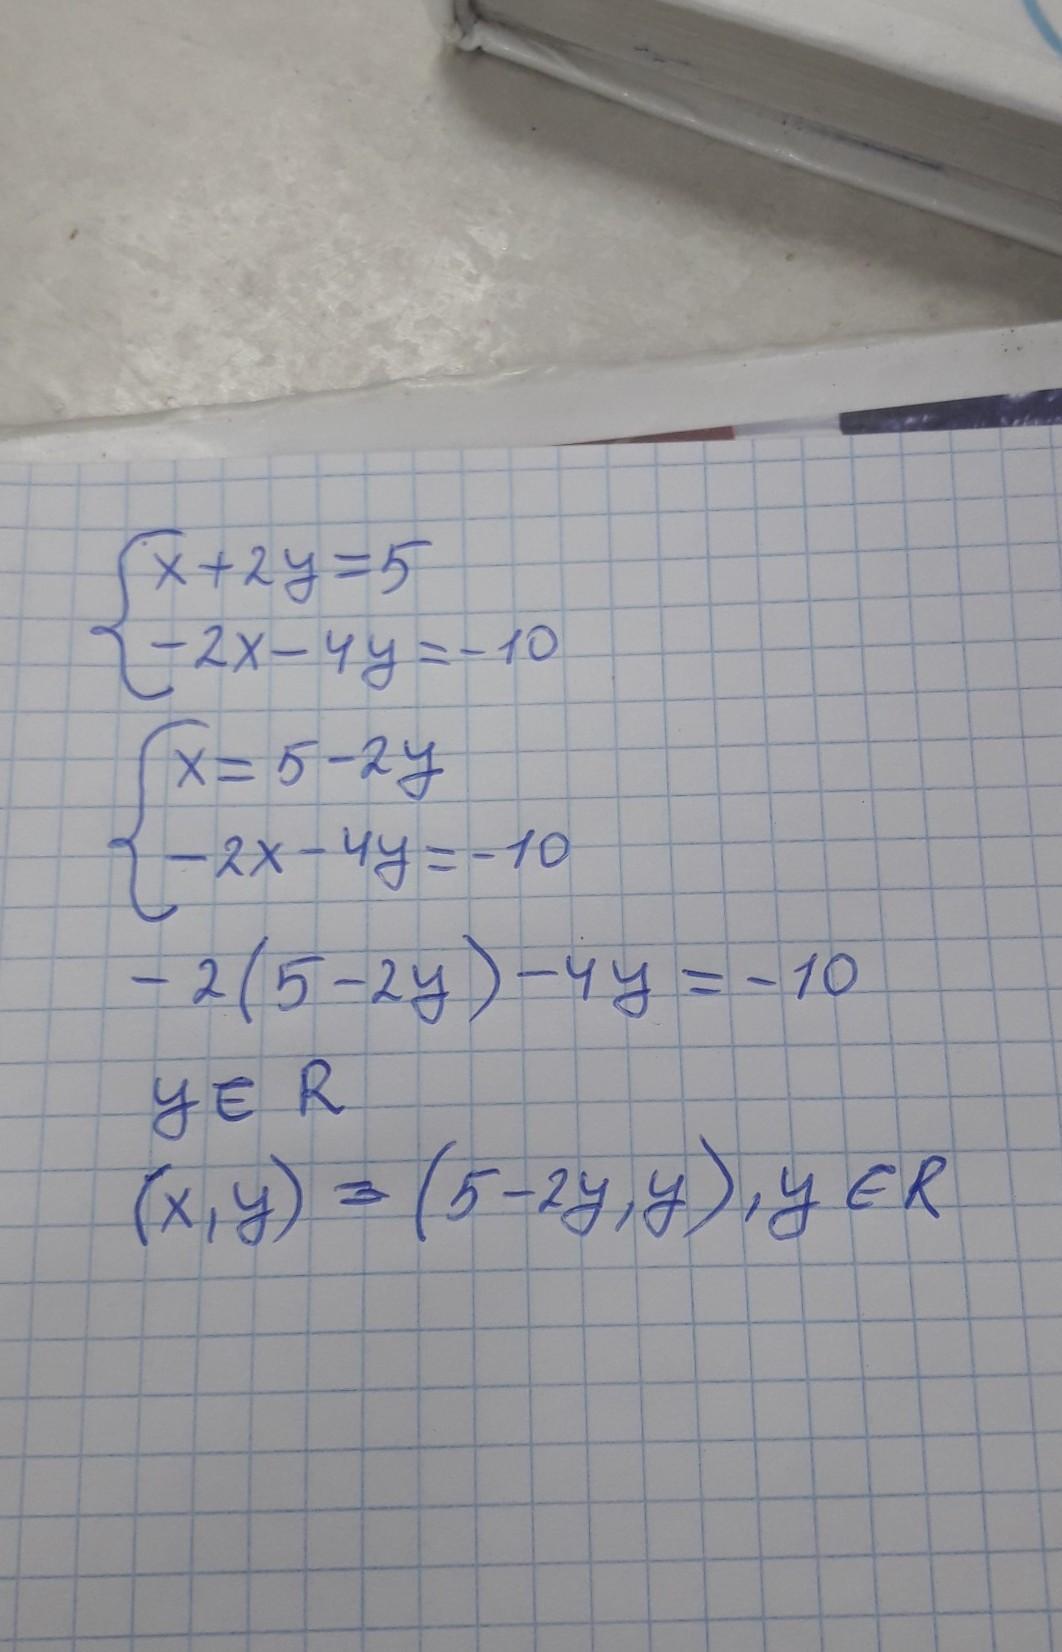 x+2y=5
-2x-4y=-10
x=5-2y
-2x-4y=-10
-2(5-2y)-4y=-10
y∈R
(x,y)=(5-2y,y),y∈R